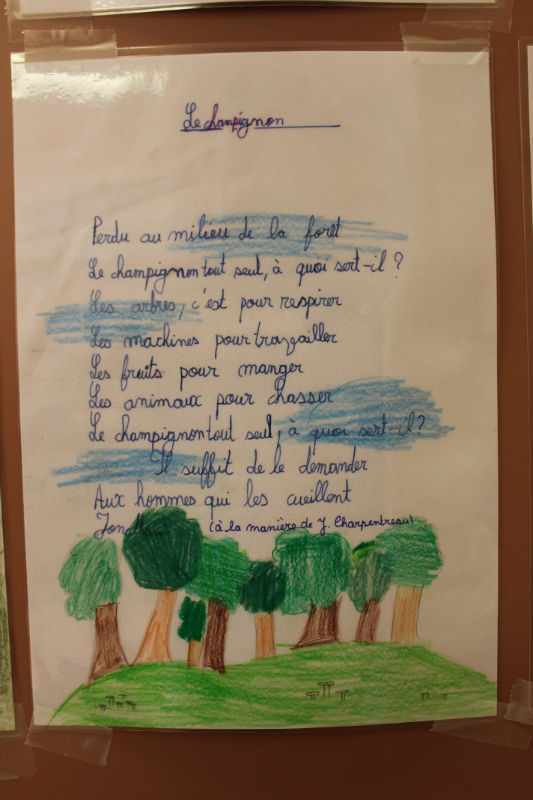 Le champignon
Perdu au milieu de la forêt
Le champignon tout seul, à quoi sert-il ?
Les arbres, c'est pour respirer
Les machines pour travailler
Les fruits pour manger
Les animaux pour chasser
Le champignon tout seul, à quoi sert-il ?
Il suffit de le demander
Aux hommes qui les cueillent
(à la manière de J. Charpentreau)